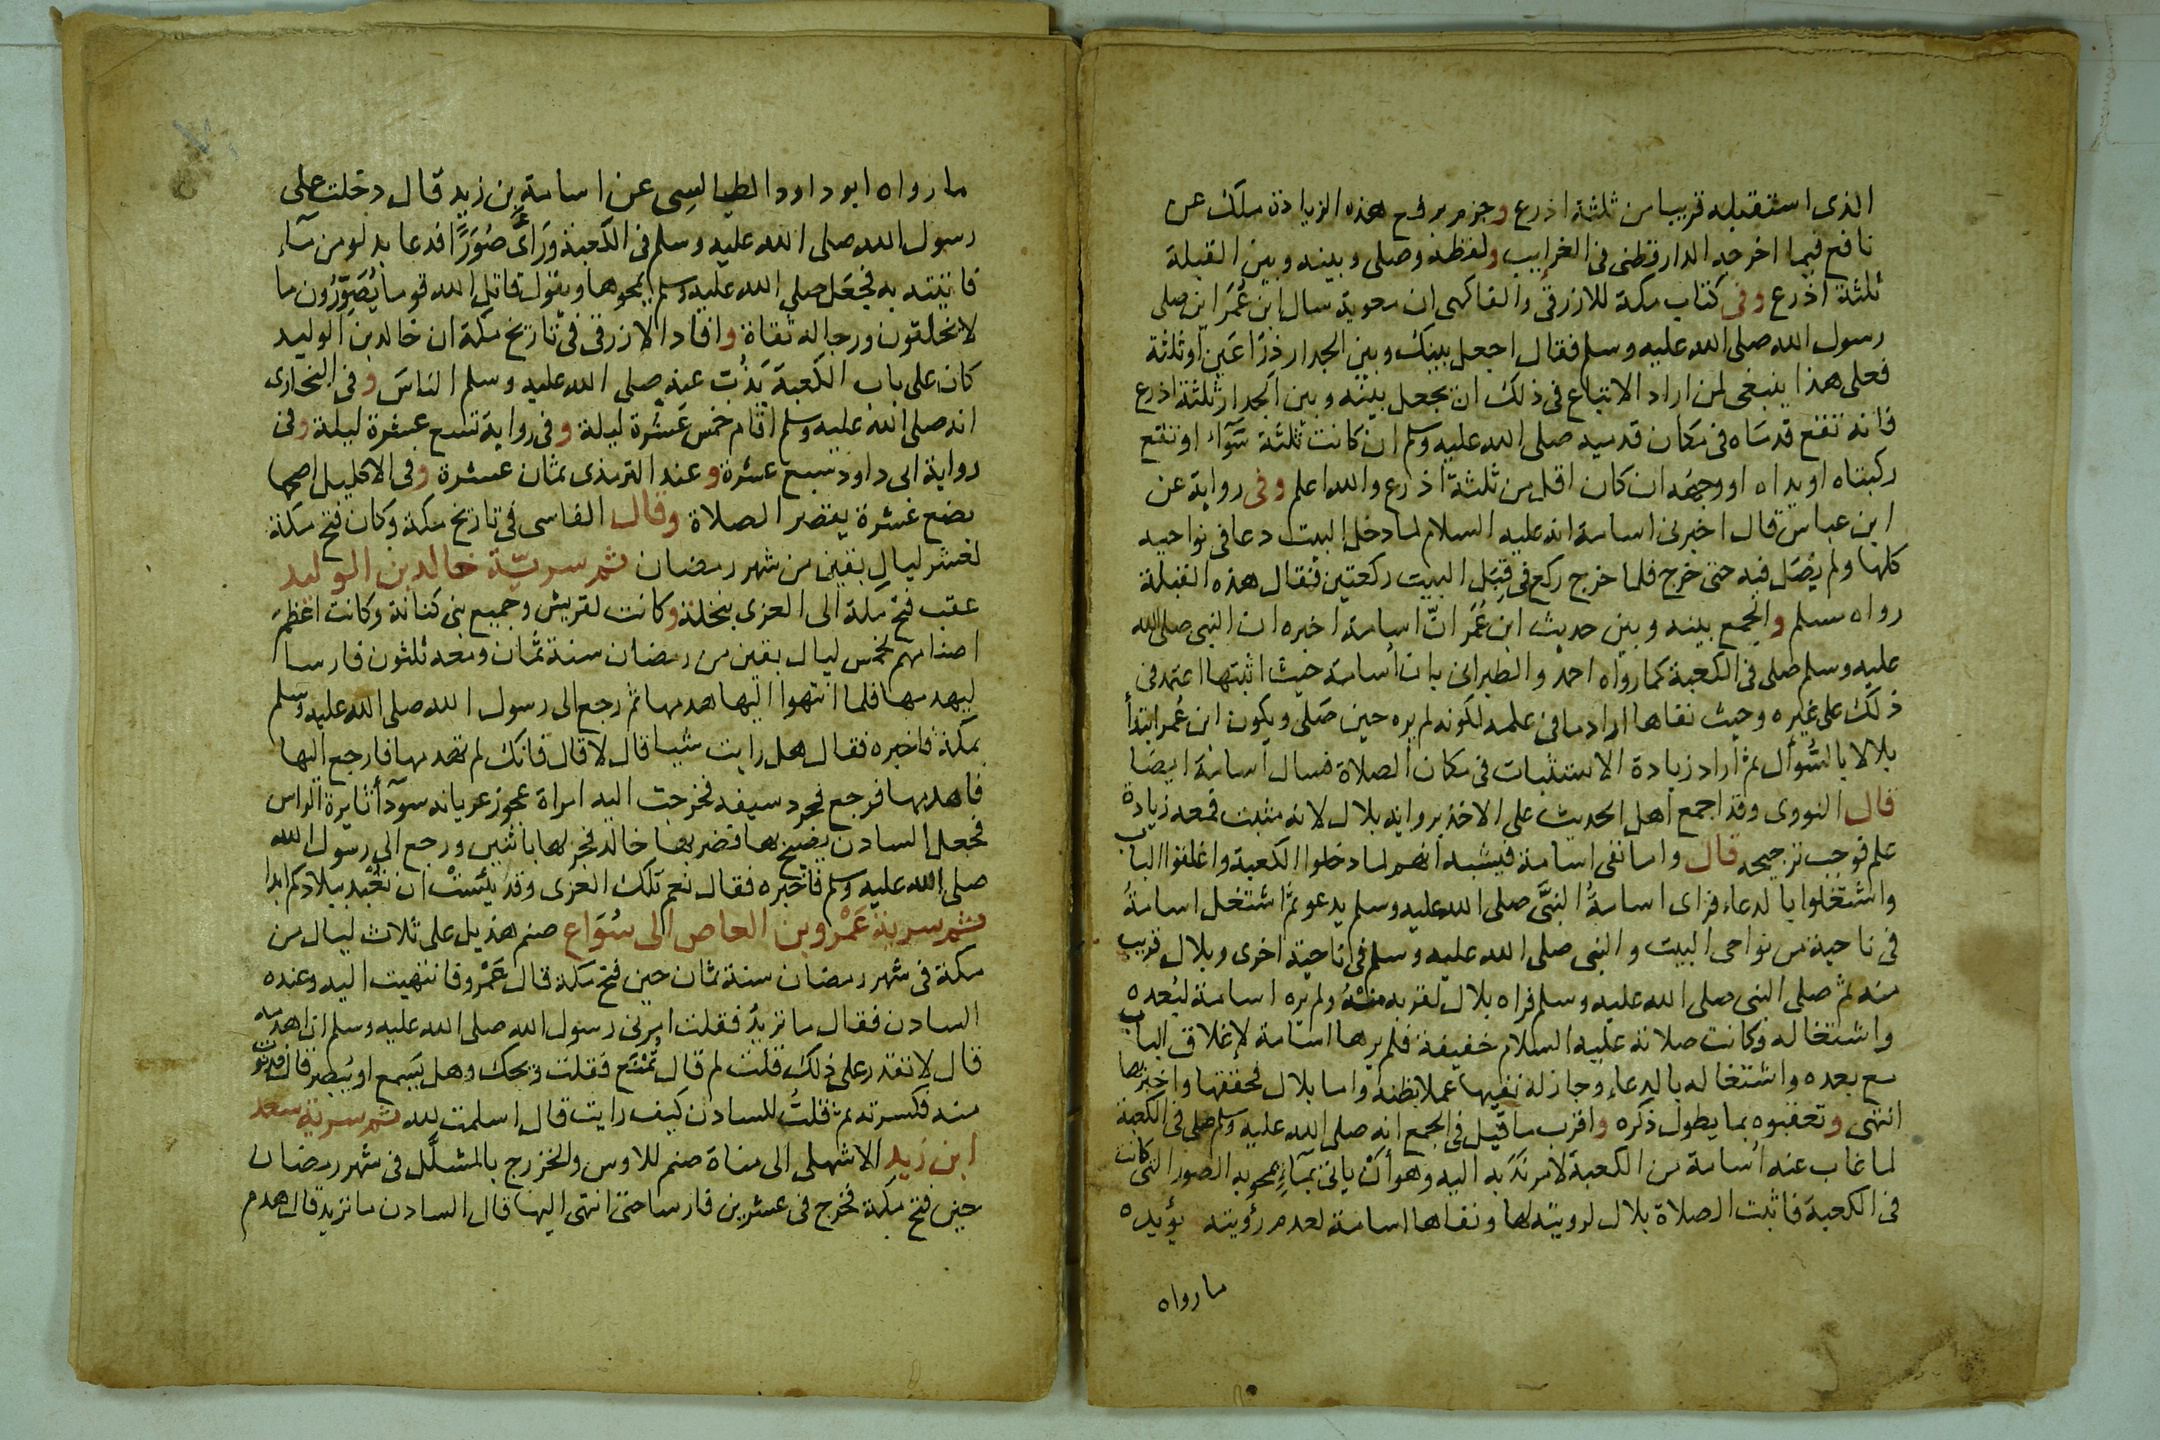 الذى استقبله قريبا من ثلثة اذرع وجزم برفع هذه الزيادة ملك عن
نافع فيما اخرجه الدارقطنى فى الغرايب ولفظه وصلى وبينه وبين القبلة
ثلثة اذرع وفى كتاب مكة للازرقى والفاكهى ان معوية سال ابن عُمَر اين صلى
رسول الله صلى الله عليه وسلم فقال اجعل بينك وبين الجدار ذراعَين اوثلثة
فعلى هذا ينبغى لمن اراد الاتباع فى ذلك ان يجعل بينه وبين الجدار ثلثة اذرع
فانه تقع قدماه فى مكان قدميه صلى الله عليه وسلم ان كانت ثلثة سَوَآء او تقع
ركبتاه او يداه او وجهُه ان كان اقل من ثلثة اذرع والله اعلم وفى رواية عن
ابن عباس قال اخبرنى اسامة انه عليه السلام لما دخل البيت دعا فى نواحيه
كلها ولم يُصَل فيه حتى خرج فلما خرج ركع فى قِبَل البيت ركعتين فقال هذه القبلة
رواه مسلم والجمع بينه وبين حديث ابن عُمَر انّ اسامة اخبره ان النبى صلى الله
عليه وسلم صلى فى الكعبة كما رواه احمد والطبرانى بان اسامة حيث اثبتها اعتمد فى
ذلك على غيره وحيث نفاها اراد ما فى علمه لكونه لم يره حين صَلى ويكون ابن عُمر ابتدأ
بلالا بالسُّوأل ثم اراد زيادة الاستثبات فى مكان الصلاة فسال اسامة ايضا
قال النووى وقد اجمع اهل الحديث على الاخذ برواية بلال لانه مثبت فمعه زيادة
علم فوجب ترجيحه قال واما نفى اسامة فيشبه انهم لما دخلوا الكعبة واغلقوا الباب
واشتغلوا بالدعاء فراى اسامةُ النبَّى صلى الله عليه وسلم يدعو ثم اشتغل اسامةُ
فى ناحية من نواحى البيت والنبى صلى الله عليه وسلم فى ناحية اخرى وبلال قريب
منه ثم صلى النبى صلى الله عليه وسلم فراه بلال لقربه منْهُ ولم يره اسامة لبُعده
واشتغاله وكانت صلاته عليه السلام خفيفة فلم يرها اسامة لإغلاق الباب
مع بعده واشتغاله بالدعاء وجاز له نفيها عملا بظنه واما بلال فحققها واخبر بها
انتهى وتعقبوه بما يطول ذكره واقرب ما قيل فى الجمع انه صلى الله عليه وسلم صلى فى الكعبة
لما غاب عنه اُسامة من الكعبة لامر نَدَبه اليه وهو أنْ ياتى بمآءٍ يمحو به الصور التى كانت
فى الكعبة فاثبت الصلاة بلال لرويته لها ونفاها اسامة لعدم رؤيته يؤيده
ما رواه
ما رواه ابو داود الطيالسِى عن اسامة بن زيد قال دخلت على
رسول الله صلى الله عليه وسلم فى الكعبة ورَاىَ صُوَرًا فدعا بدلو من مآء
فاتيته به فجعَل صلى الله عليه وسلم يمحوها ويقول قاتل الله قوما يُصَوِّرُون ما
لا يخلقون ورجاله ثقاة وافاد الازرقى فى تاريخ مكة ان خالد بن الوليد
كان على باب الكعبة يَذُبّ عنه صلى الله عليه وسلم الناسَ وفى البخارى
انه صلى الله عليه وسلم اقام خمس عَشْرة ليلة وفى رواية تسع عشرة ليلة وفى
رواية ابى داود سبع عشرة وعند الترمذى ثمان عشرة وفى الاكليل اصحها
بضع عشرة يقصر الصلاة وقال الفاسى فى تاريخ مكة وكان فتح مكة
لعشر ليالٍ بقين من شهر رمضان ثم سريّة خالد بن الوليد
عقب فتح مكة الى العزى بنخلة وكانت لقريش وجميع بنى كنانة وكانت اعظمَ
اصنامهم لخمس ليال بقين من رمضان سنة ثمان ومعه ثلثون فارسا
ليهدمها فلما انتهوا اليها هدمها ثم رجع الى رسول الله صلى الله عليه وسلم
بمكة فاخبره فقال هل رايت شيا قال لا قال فانك لم تهدمها فارجع اليها
فاهدمها فرجع فجرد سيفه فخرجت اليه امراة عجوز عريانه سودآ أثايرة الراس
فجعل السادن يصيح بها فضربها خالد فجزلها باثنين ورجع الى رسول الله
صلى الله عليه وسلم فاخبره فقال نعم تلك العزى وقد يَئِسَتْ ان تُعْبد ببلادكم ابدا
ثم سرية عَمْرو بن العاص الى سُوَاع صنم هذيل على ثلاث ليال من
مكة فى شهر رمضان سنة ثمان حين فتح مكة قال عَمْرو فانتهيت اليه وعنده
السادن فقال ما تريدُ فقلت امرنى رسول الله صلى الله عليه وسلم ان اهدمه
قال لا تقدر على ذلك قلت لم قال تُمْنَع فقلت ويحك وهل يَسمع او يُبصر قال فدنوت
منه فكسرته ثم قلتُ للسادن كيف رايت قال اسلمت لله ثم سرية سعد
ابن زيد الاشهلى الى مناة صنم للاوس والخزرج بالمشلَّل فى شهر رمضان
حين فتح مكة فخرج فى عشرين فارسا حتى انتهى اليها قال السادن ما تريد قال هدم